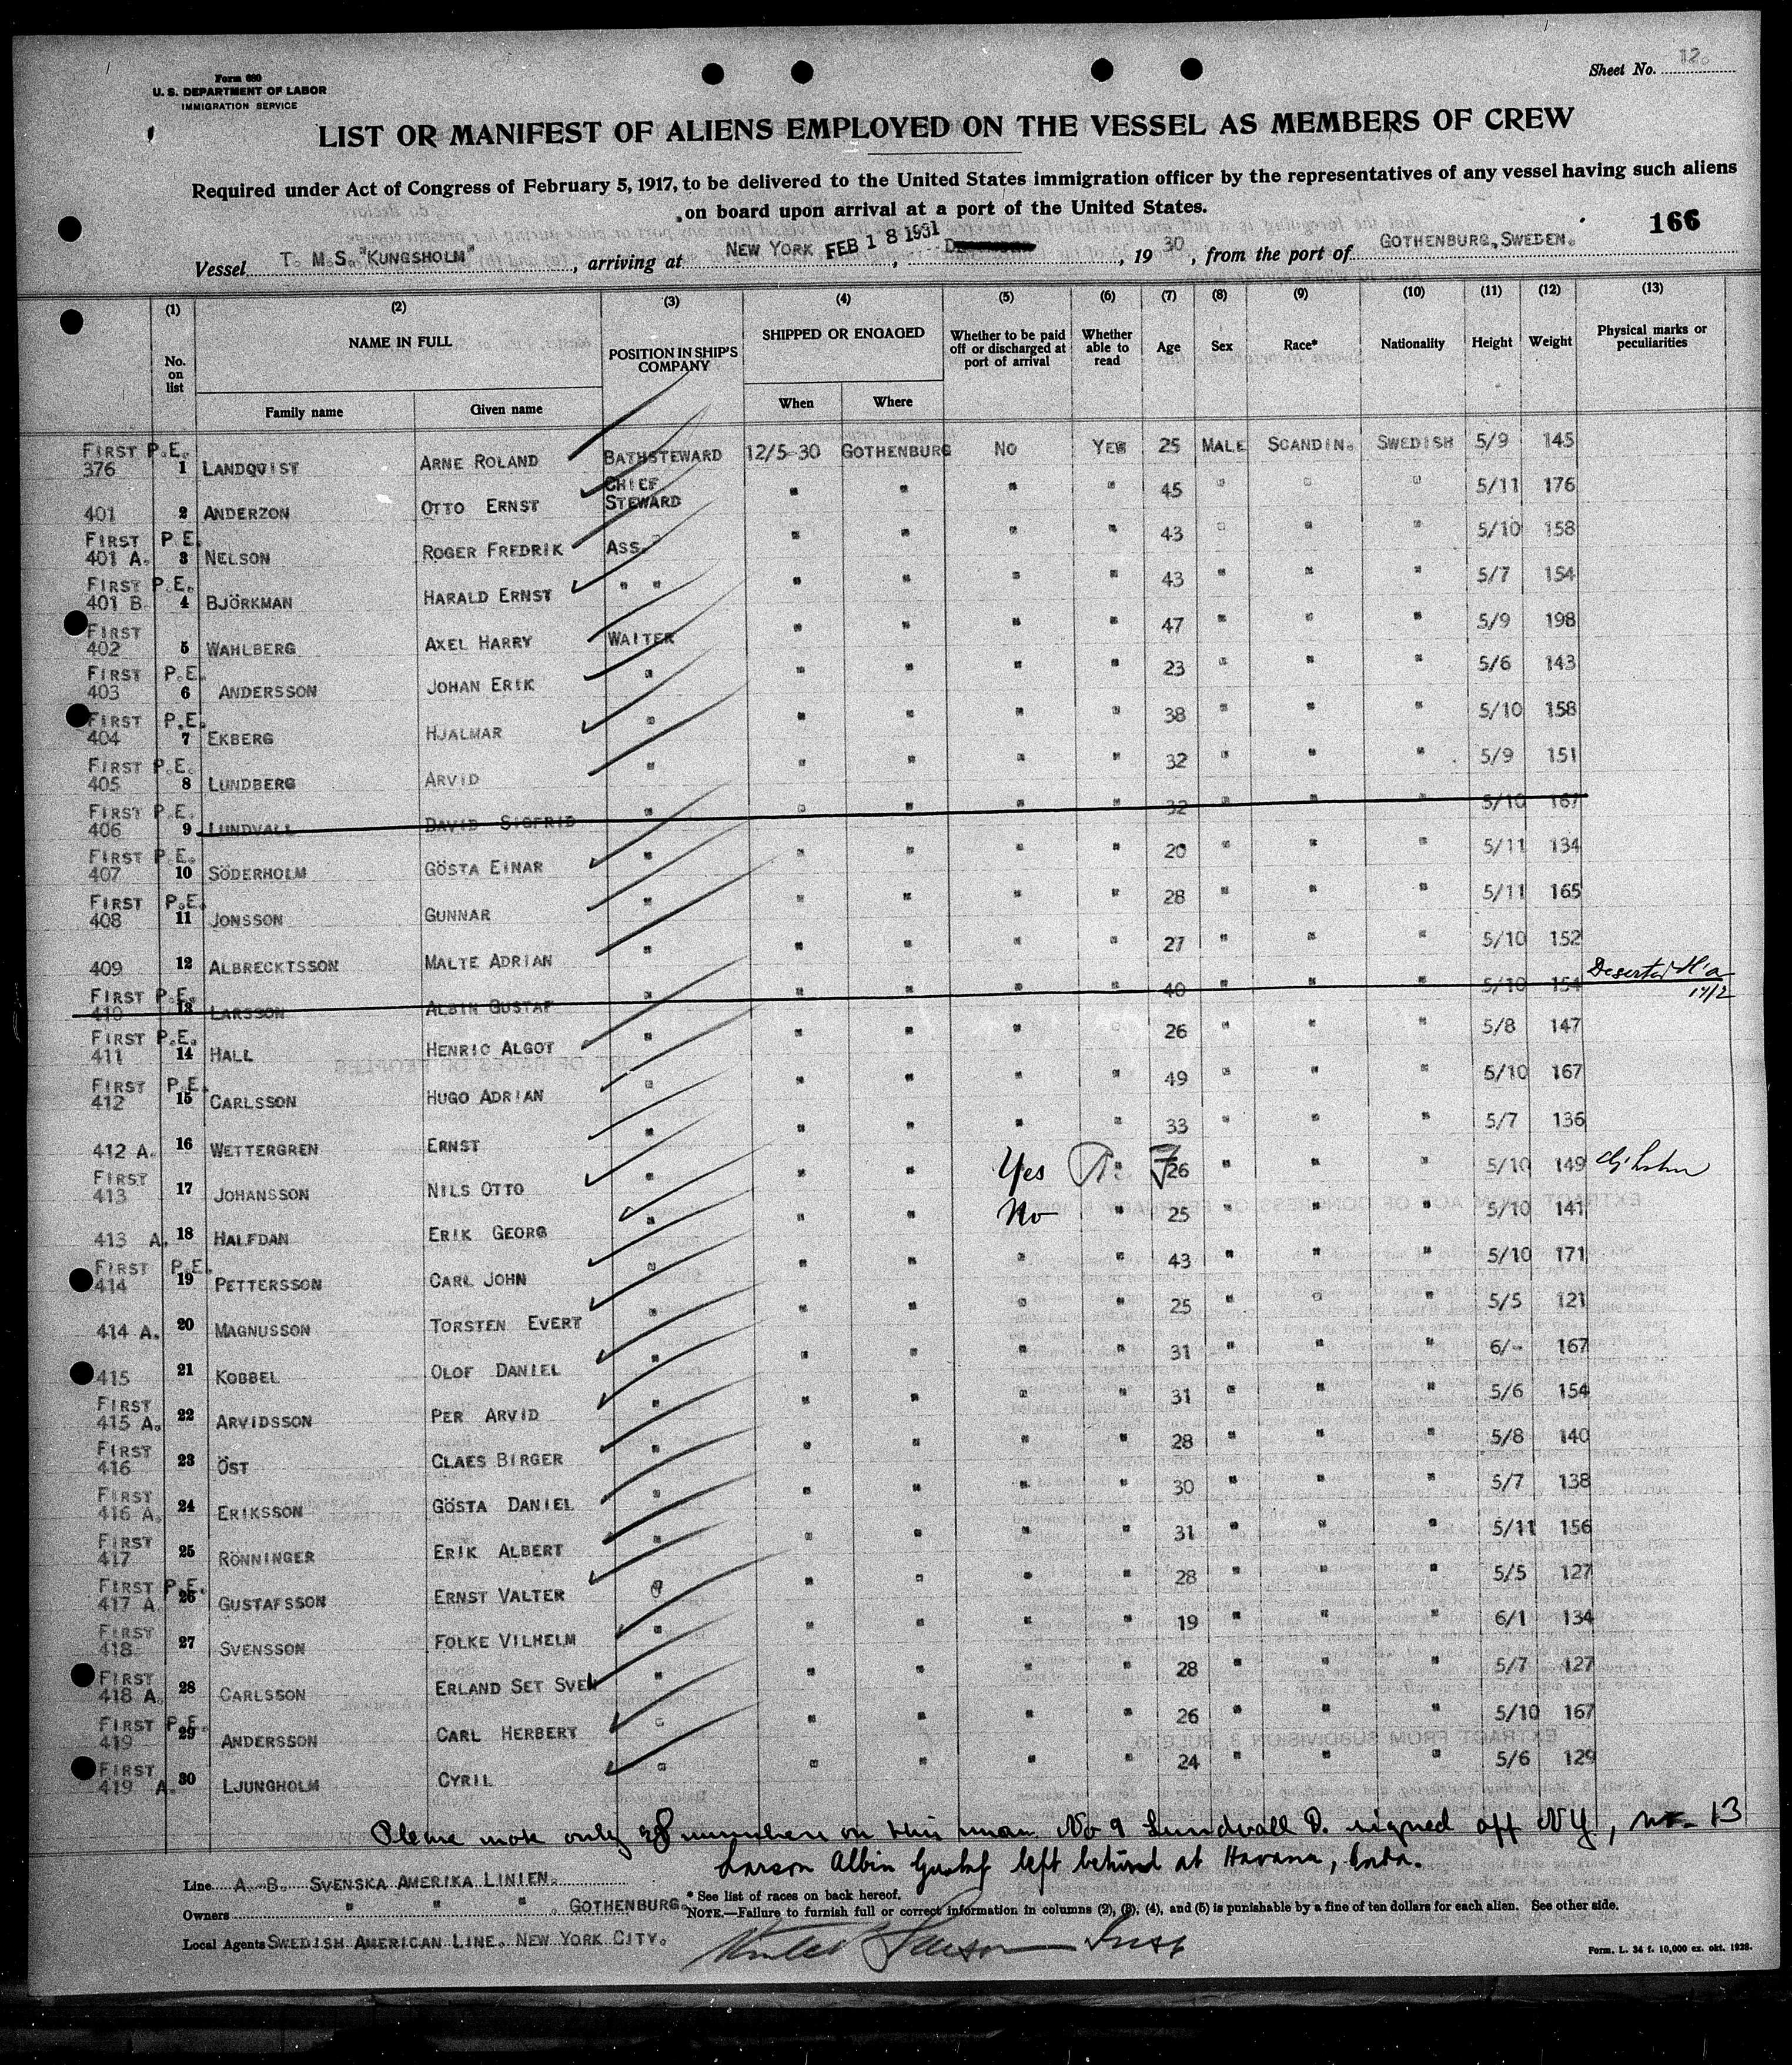 Form 680
U. S. DEPARTMENT OF LABOR
IMMIGRATION SERVICE
Sheet No. 12.
LIST OR MANIFEST OF ALIENS EMPLOYED ON THE VESSEL AS MEMBERS OF CREW
Required under Act of Congress of February 5, 1917, to be delivered to the United States immigration officer by the representatives of any vessel having such aliens
on board upon arrival at a port of the United States.
166
Vessel T. M.S. "KUNGSHOLM", arriving at NEW YORK FEB 18 1931, 1930, from the port of GOTHENBURG, SWEDEN.
(1) (2) (3) (4) (5) (6) (7) (8) (9) (10) (11) (12) (13)
No. on list NAME IN FULL POSITION IN SHIP'S COMPANY SHIPPED OR ENGAGED Whether to be paid off or discharged at port of arrival Whether able to read Age Sex Race* Nationality Height Weight Physical marks or peculiarities
Family name Given name When Where
FIRST P.E. 376 1 LANDQVIST ARNE ROLAND BATHSTEWARD 12/5-30 GOTHENBURG NO YES 25 MALE SCANDIN. SWEDISH 5/9 145
401 2 ANDERZON OTTO ERNST CHIEF STEWARD " " " " 45 " " " 5/11 176
FIRST P.E. 401 A. 3 NELSON ROGER FREDRIK ASS. " " " " " 43 " " " 5/10 158
FIRST P.E. 401 B 4 BJÖRKMAN HARALD ERNST " " " " " " 43 " " " 5/7 154
FIRST 402 5 WAHLBERG AXEL HARRY WAITER " " " " 47 " " " 5/9 198
FIRST P.E. 403 6 ANDERSSON JOHAN ERIK " " " " " 23 " " " 5/6 143
FIRST P.E. 404 7 EKBERG HJALMAR " " " " " 38 " " " 5/10 158
FIRST P.E. 405 8 LUNDBERG ARVID " " " " " 32 " " " 5/9 151
FIRST P.E. 406 9 LUNDVALL DAVID SIGFRID " " " " " 32 " " " 5/10 167
FIRST P.E. 407 10 SÖDERHOLM GÖSTA EINAR " " " " " 20 " " " 5/11 134
FIRST P.E. 408 11 JONSSON GUNNAR " " " " " 28 " " " 5/11 165
409 12 ALBRECKTSSON MALTE ADRIAN " " " " " 27 " " " 5/10 152
FIRST P.E. 410 13 LARSSON ALBIN GUSTAF " " " " " 40 " " " 5/10 154 Deserted 14/2
FIRST P.E. 411 14 HALL HENRIC ALGOT " " " " " 26 " " " 5/8 147
FIRST P.E. 412 15 CARLSSON HUGO ADRIAN " " " " " 49 " " " 5/10 167
412 A. 16 WETTERGREN ERNST " " " " " 33 " " " 5/7 136
FIRST 413 17 JOHANSSON NILS OTTO " " " Yes " 26 " " " 5/10 149
413 A. 18 HALFDAN ERIK GEORG " " " No " 25 " " " 5/10 141
FIRST P.E. 414 19 PETTERSSON CARL JOHN " " " " " 43 " " " 5/10 171
414 A. 20 MAGNUSSON TORSTEN EVERT " " " " " 25 " " " 5/5 121
415 21 KOBBEL OLOF DANIEL " " " " " 31 " " " 6/- 167
FIRST 415 A. 22 ARVIDSSON PER ARVID " " " " " 31 " " " 5/6 154
FIRST 416 23 ÖST CLAES BIRGER " " " " " 28 " " " 5/8 140
FIRST 416 A. 24 ERIKSSON GÖSTA DANIEL " " " " " 30 " " " 5/7 138
FIRST 417 25 RÖNNINGER ERIK ALBERT " " " " " 31 " " " 5/11 156
FIRST P.E. 417 A 26 GUSTAFSSON ERNST VALTER " " " " " 28 " " " 5/5 127
FIRST 418 27 SVENSSON FOLKE VILHELM " " " " " 19 " " " 6/1 134
FIRST 418 A. 28 CARLSSON ERLAND SET SVEN " " " " " 28 " " " 5/7 127
FIRST P.E. 419 29 ANDERSSON CARL HERBERT " " " " " 26 " " " 5/10 167
FIRST 419 A. 30 LJUNGHOLM CYRIL " " " " " 24 " " " 5/6 129
Please note only 28 numbers on this No 9 Lundvall D. signed off NY, no 13
Larson Albin Gustaf left behind at Havana, Cuba.
Line A. B. SVENSKA AMERIKA LINIEN.
* See list of races on back hereof.
Owners " " " . GOTHENBURG.
NOTE.—Failure to furnish full or correct information in columns (2), (3), (4), and (5) is punishable by a fine of ten dollars for each alien. See other side.
Local Agents SWEDISH AMERICAN LINE. NEW YORK CITY.
Form. L. 34 f. 10,000 ex. okt. 1928.